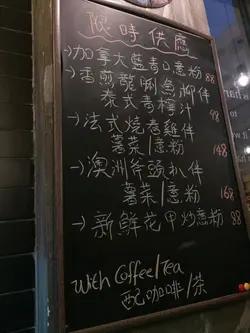 限時供應
→加拿大藍青口意粉 88
→香煎龍脷魚柳伴
泰式青檸汁 98
→法式燒春雞伴
薯菜/意粉 148
→澳洲斧頭扒伴
薯菜/意粉 168
→新鮮花甲炒意粉 88
With Coffee/Tea
配咖啡/茶